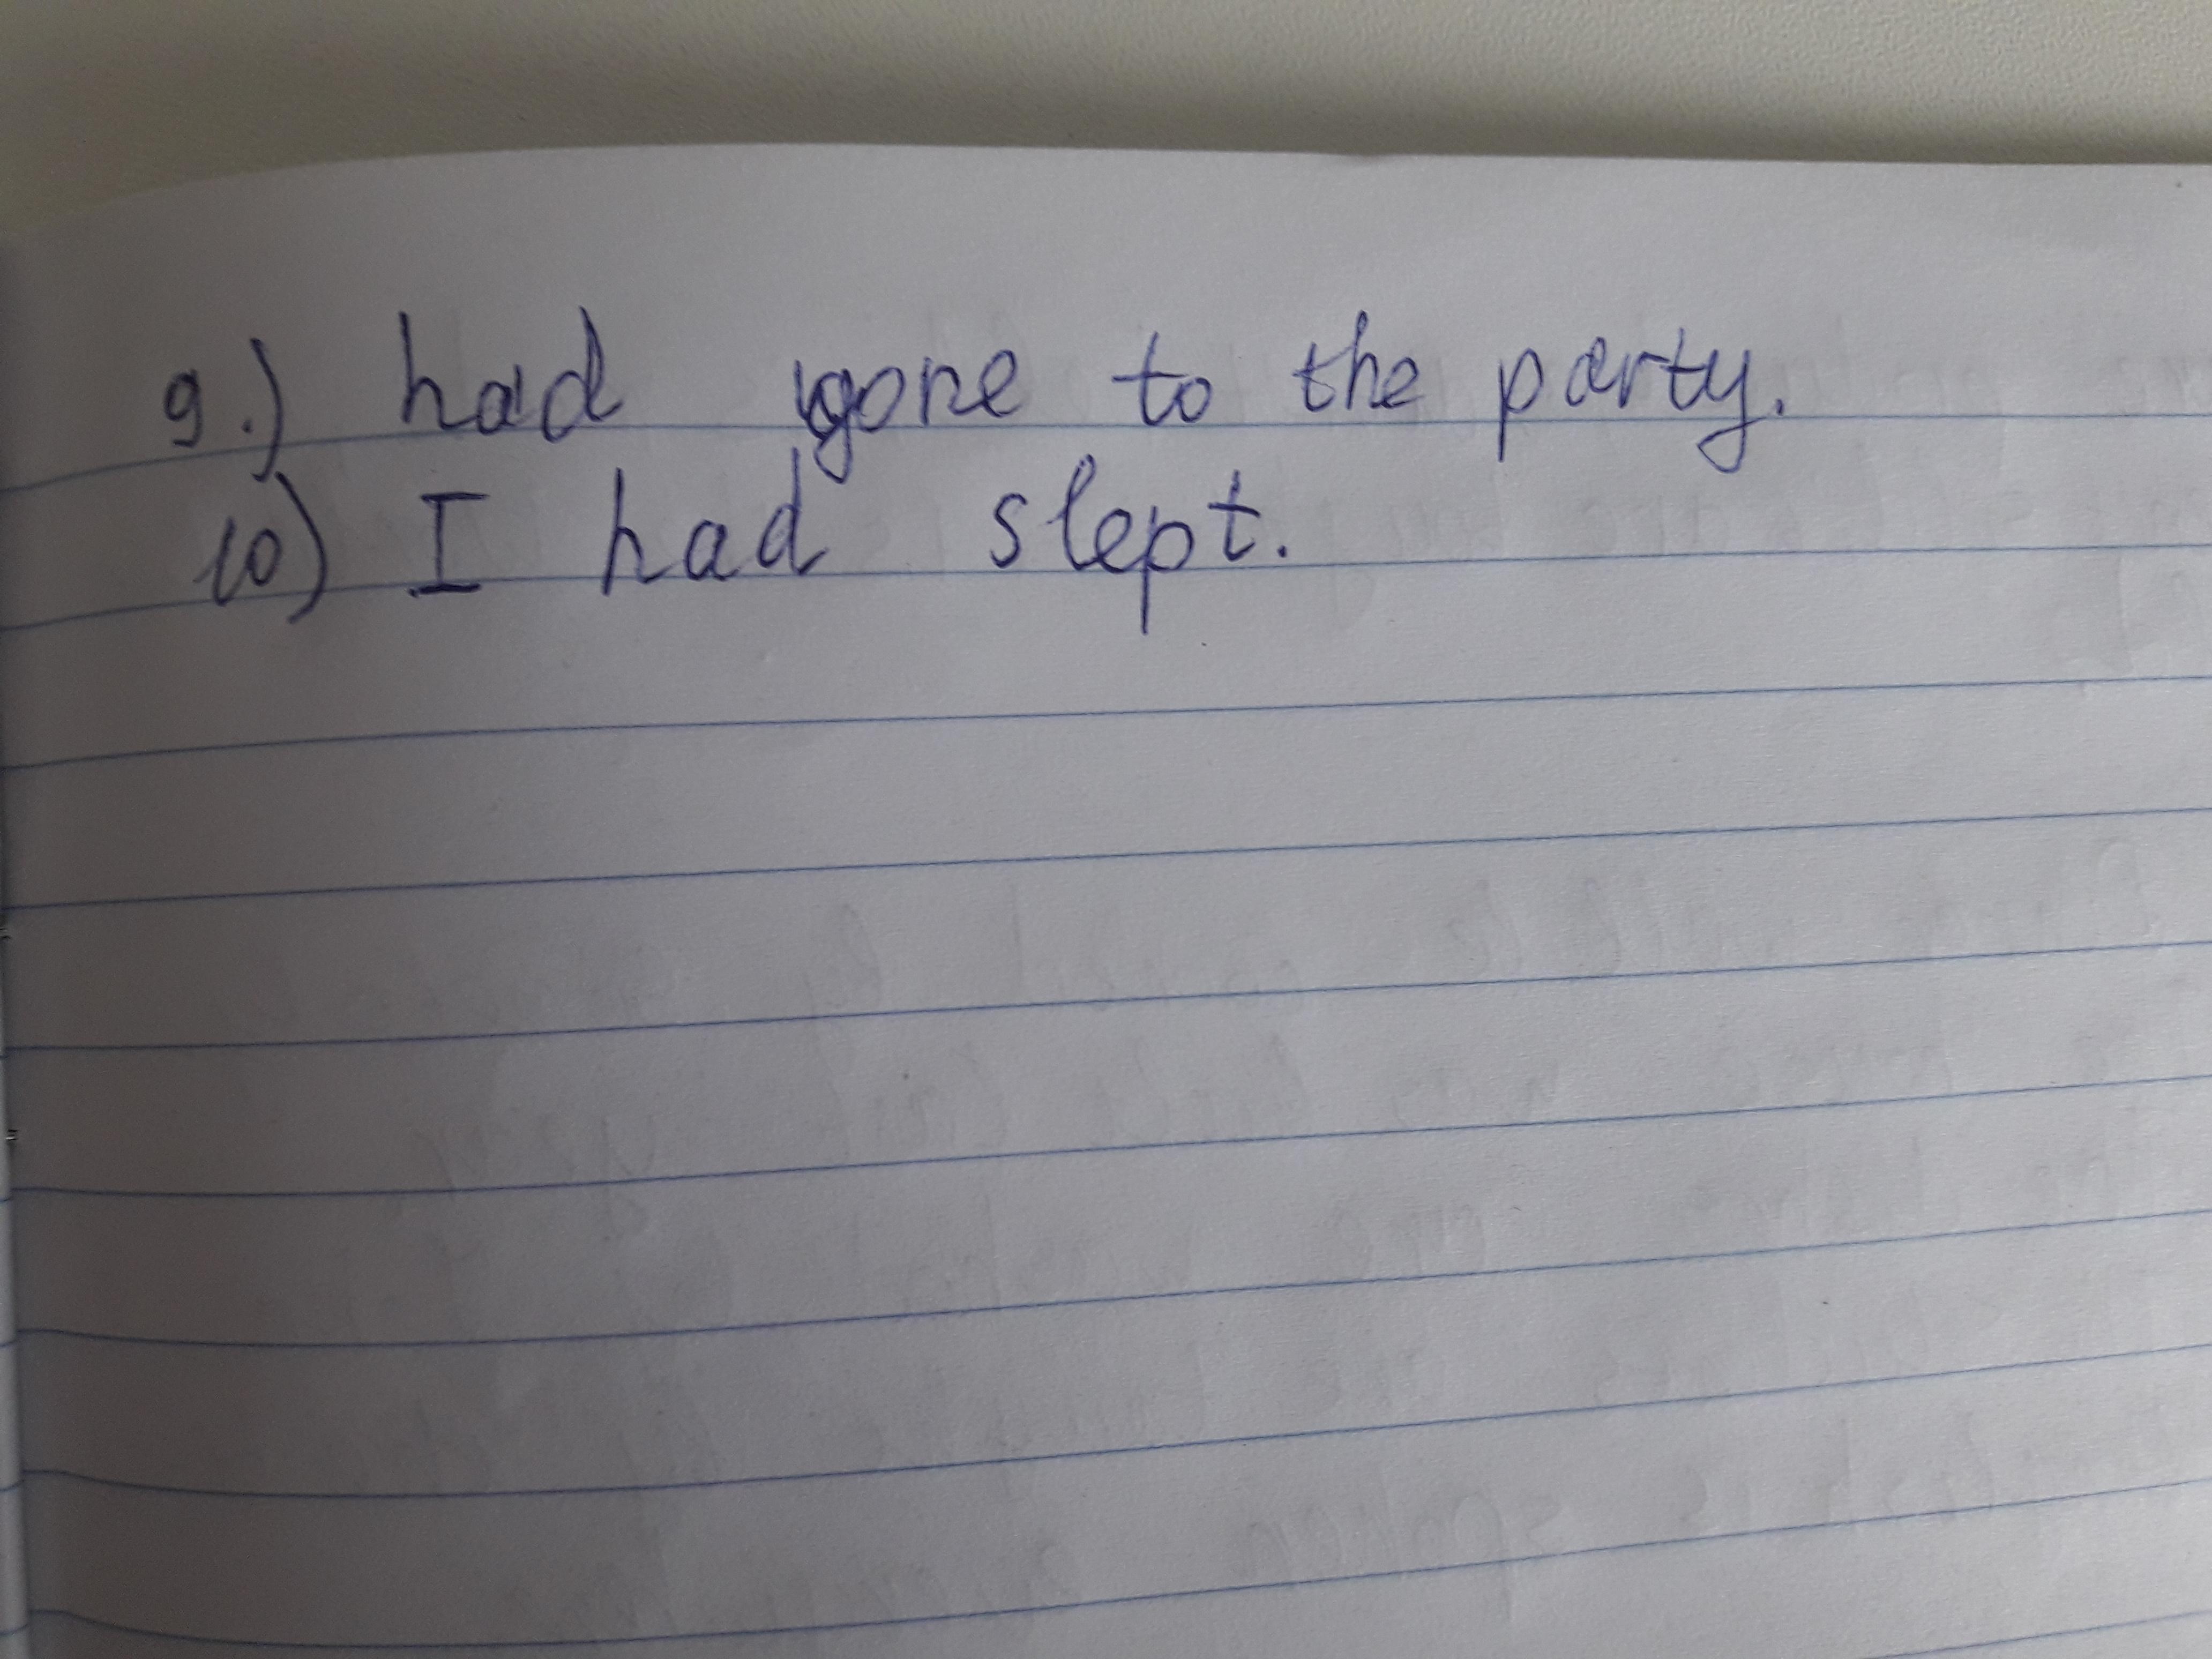 9.) had gone to the party.
10) I had slept.